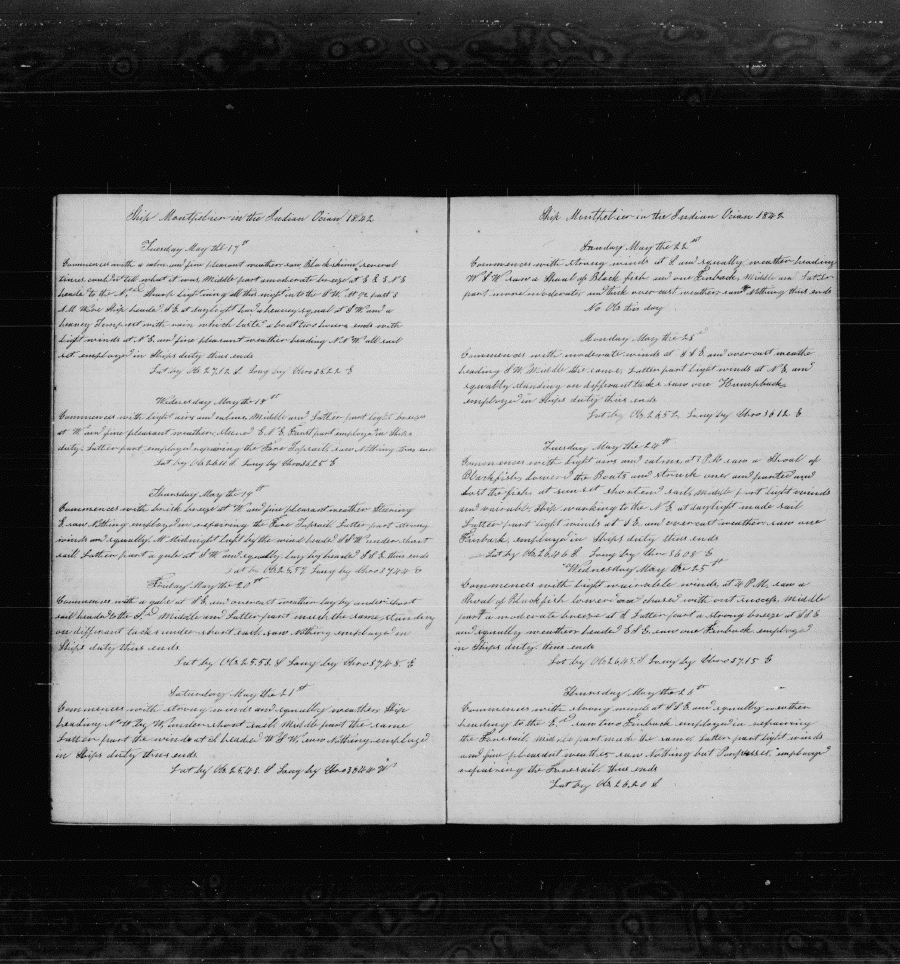 Ship Montpelier in the Indian Ocian 1842
Tuesday May the 17th
Commences with a calm and fine pleasant weather saw Blackskinn several
times could not tell what it was Middle part moderate breeze at
heade to the N. Sharp Lightning all this night in to the S W. At
N.W. Wore Ship heade S E. at daylight had a heavey squal at S W and a
heavey Tempest with rain which laste about two hours ends with
Light winds at N E. and fine pleasant weather heading N N W. all sail
set employed in Ships duty thus ends
Lat by Ob 27,12 S Long by Chro 38,22 E
Wedensday May the 18th
Commences with light airs and calms, Middle and Latter part light breezes
at W and fine pleasant weather, E. N. E. First part employed in Ships
duty, Latter part employed repairing the Fore Topsail, saw Nothing thus ends
Lat by Ob 26,11 S Long by Chro 36,25 E
Thursday May the 19th
Commences with brisk breeze at W and fine pleasant weather Steering
E. saw Nothing employed in repairing the Fore Topsail Latter part strong
winds and squally, At Midnight Luft by the wind heade S S W under short
sail Latter part a gale at S W and squally lay by heade S S E thus ends
Lat by Ob 25,57 Long by Chro 37,44 E
Friday May the 20th
Commences with a gale at S E and overcast weather lay by under short
sail heade to the S.d Middle and Latter part much the same standing
on different tacks under short sail saw nothing employed in
Ships duty thus ends
Lat by Ob 25,52 S Long by Chro 37,48 E
Saturday May the 21st
Commences with strong winds and squally weather Ship
heading N W by W. under short sail Middle part the same
Latter part the wind at S heade W S W, saw Nothing employed
in Ships duty thus ends
Lat by Ob 25,43 S Long by Chro 36,44 E
Ship Montpelier in the Indian Ocian 1842
Sunday May the 22nd
Commences with strong winds at S and squally weather heading
W S W saw a Shoal of Black fish and one Finback, Middle and Latter
part more moderate and thick overcast weather saw Nothing thus ends
No Ob this day
Monday May the 23d
Commences with moderate winds at S S E and overcast weather
heading S W Middle the same, Latter part Light winds at N E. and
squally standing on different tacks saw one Humpback
employed in Ships duty thus ends
Lat by Ob 26,52 Long by Chro 36,12 E
Tuesday May the 24th
Commences with light airs and calms, at 3 P.M. saw a Shoal of
Blackfish, Lowerd the Boats and struck one and parted and
lost the fish, at sunset shortend sail, Middle part light winds
and vairable, Ship working to the N E. at daylight made sail
Latter part light winds at S E. and overcast weather, saw one
Finback, employed in Ships duty thus ends
Lat by Ob 26,46 S Long by Chro 36,08 E
Wednesday May the 25th
Commences with light vairiable winds, at 4 P.M. saw a
Shoal of Blackfish lowerd and chased with out success, Middle
part a moderate breeze at S Latter part a strong breeze at S S E
and squally weather heade E S E. saw one Finback employed
in Ships duty thus ends
Lat by Ob 26,45 S Long by Chro 37,15 E
Thursday May the 26th
Commences with strong winds at S S E and squally weather
heading to the E.d saw two Finback employed in repairing
the Foresail, Middle part much the same, Latter part light winds
and fine pleasant weather, saw Nothing but Porpusses, employed
repairing the Foresail, thus ends
Lat by Ob 26,20 S